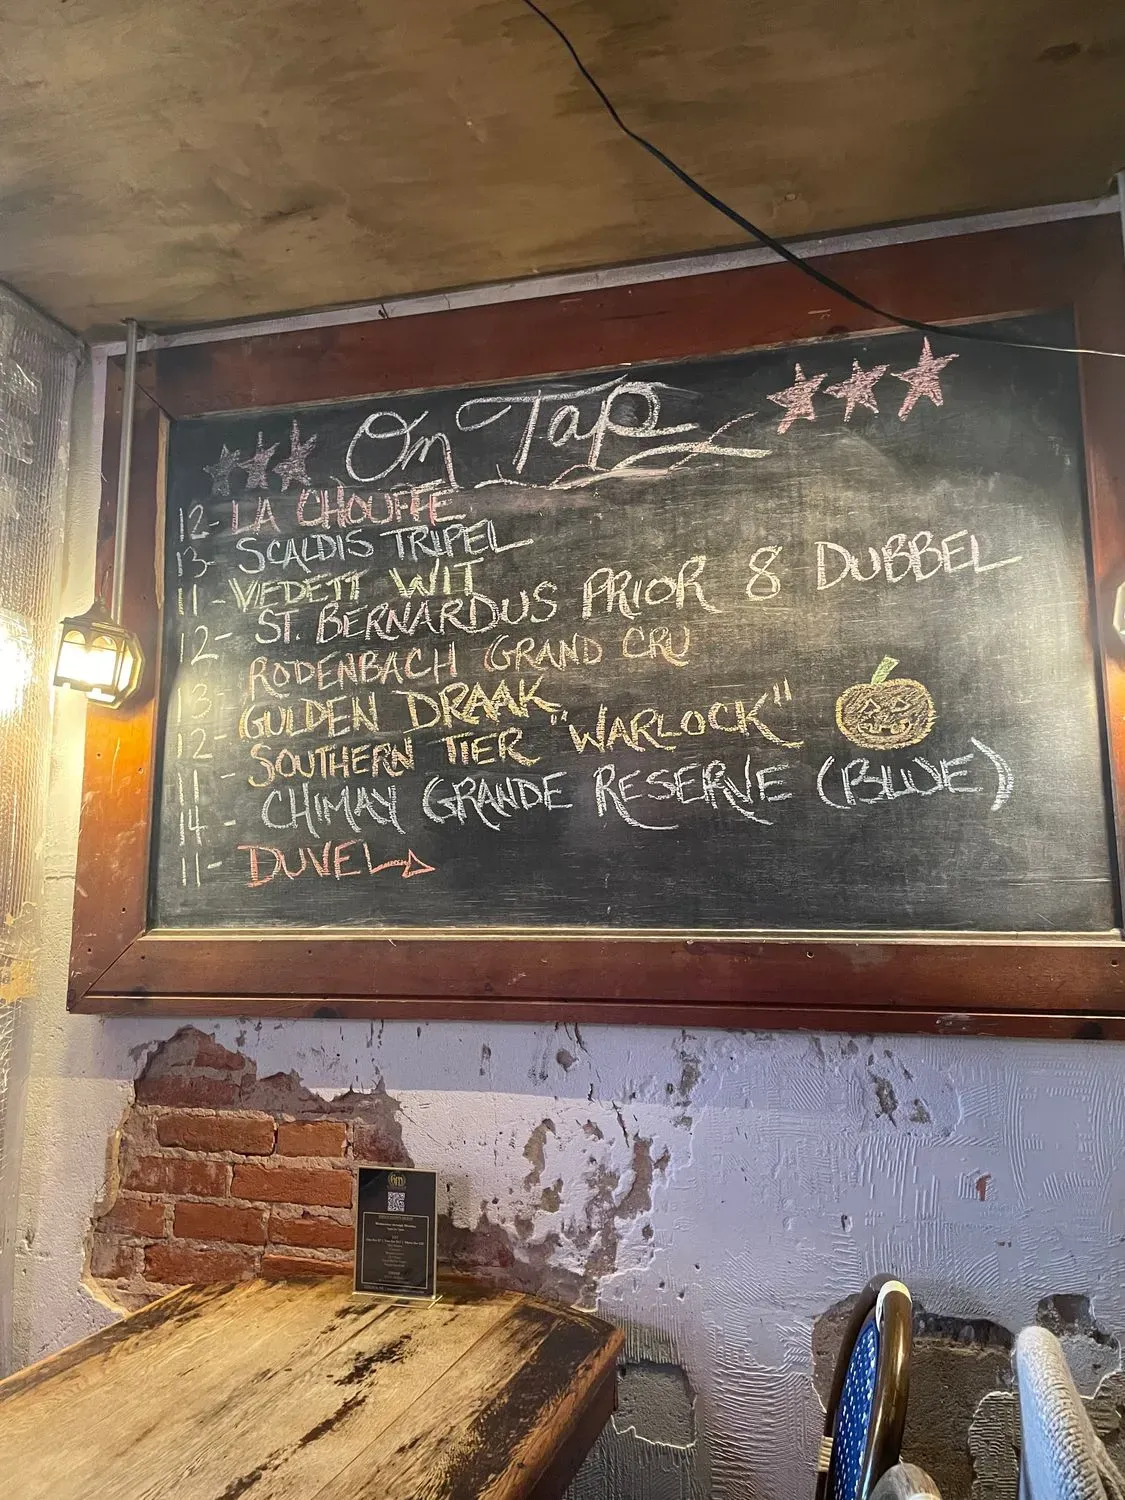 On Tap
12- LA CHOUFFE
13- SCALDIS TRIPEL
11- VEDETT WIT
12- ST. BERNARDUS PRIOR 8 DUBBEL
13- RODENBACH GRAND CRU
12- GULDEN DRAAK
11- SOUTHERN TIER "WARLOCK"
14- CHIMAY GRANDE RESERVE (BLUE)
11- DUVEL